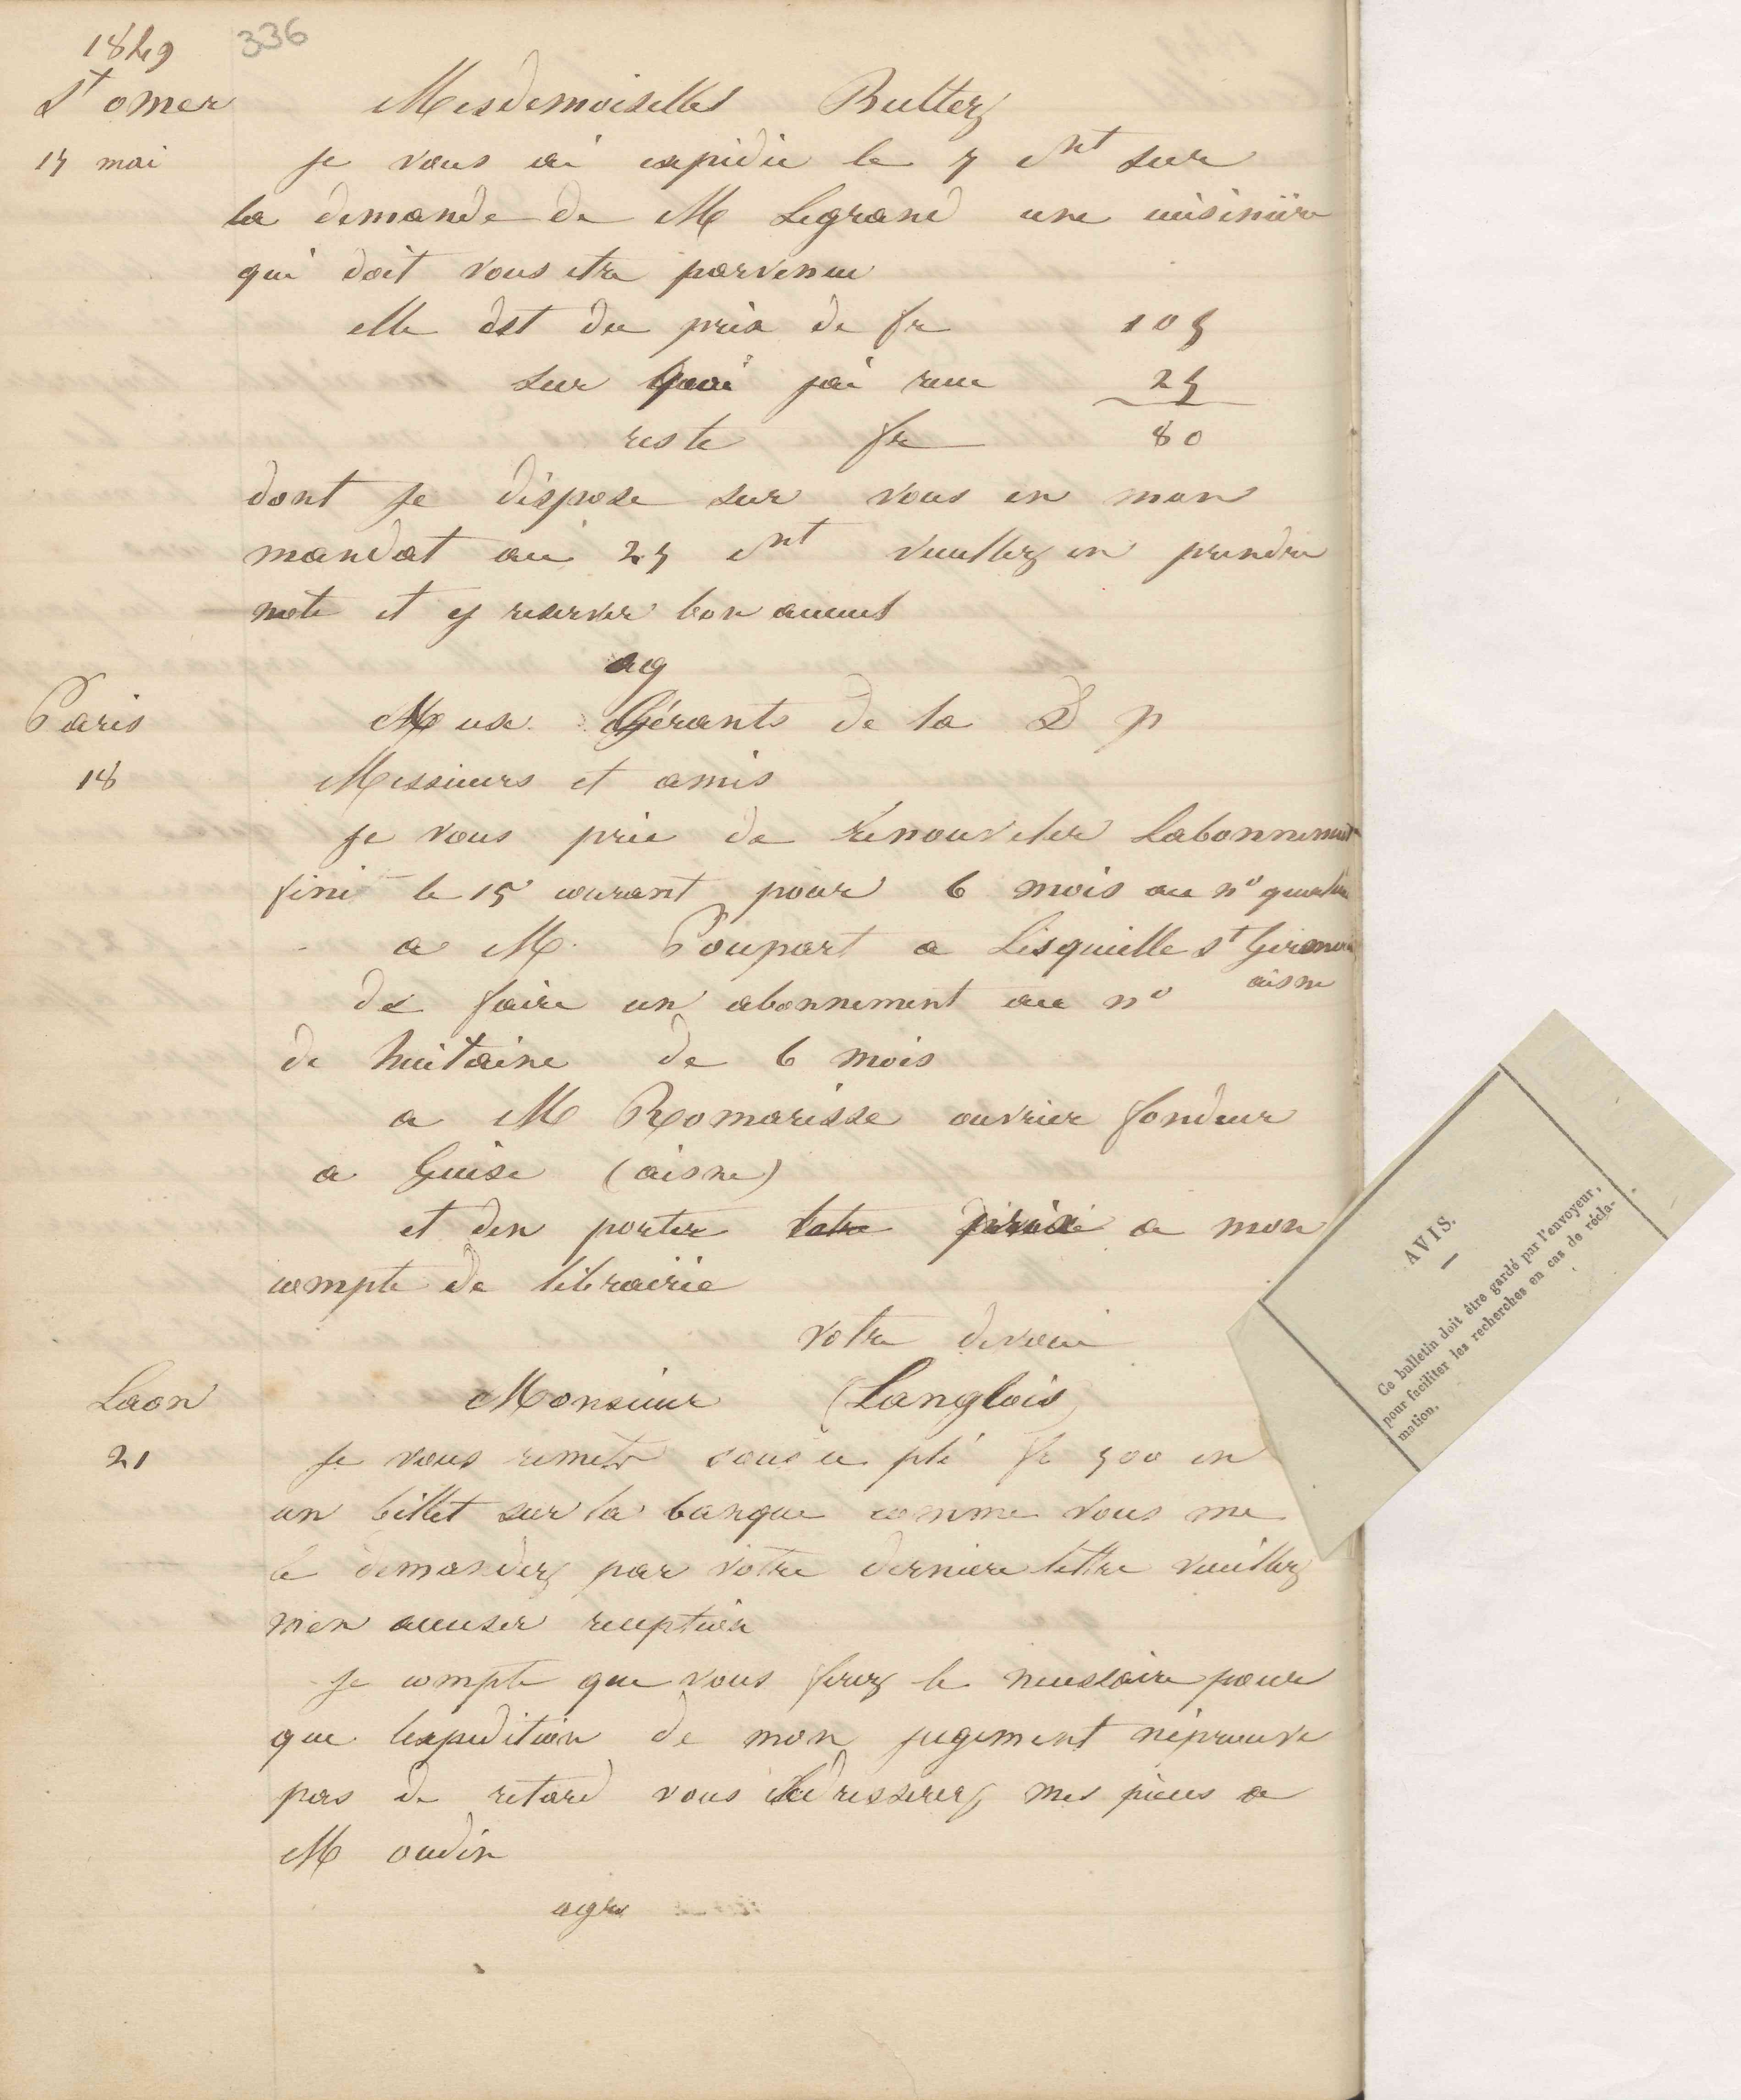 1849
336
St omer
Mesdemoiselles Butterz
15 mai
je vous ai expidie le 5 cnt sur
la demande de M Legrand une cuisiniire
qui doit vous etre parvenue
elle est du prix de fr 105
sur quoi jai recu 25
reste fr 80
dont je dispose sur vous en mon
mandat au 25 cnt veuillez en prendre
note et y reserver bon accueil
ag
Paris
Mess Gérants de la D p
18
Messieurs et amis
je vous prie de renouveler Labonnement
fini le 15 courant pour 6 mois au no
a M. Poupart a Lesquielle st Germain
aisne
de faire un abonnement au no
de huitaine de 6 mois
a M Romarisse ouvrier fondeur
a Guise (aisne)
et den porter le prix a mon
compte de librairie
votre devoué
Laon
Monsieur Langlois
21
je vous remets sous ce pli fr 500 en
un billet sur la banque comme vous me
le demandez par votre derniere lettre veuillez
men accuser reception
je compte que vous ferez le necessaire pour
que lexpedition de mon jugement néprouve
pas de retard vous adresserez mes pieces a
M oudin
agr
AVIS.
Ce bulletin doit être gardé par l'envoyeur,
pour faciliter les recherches en cas de récla-
mation.